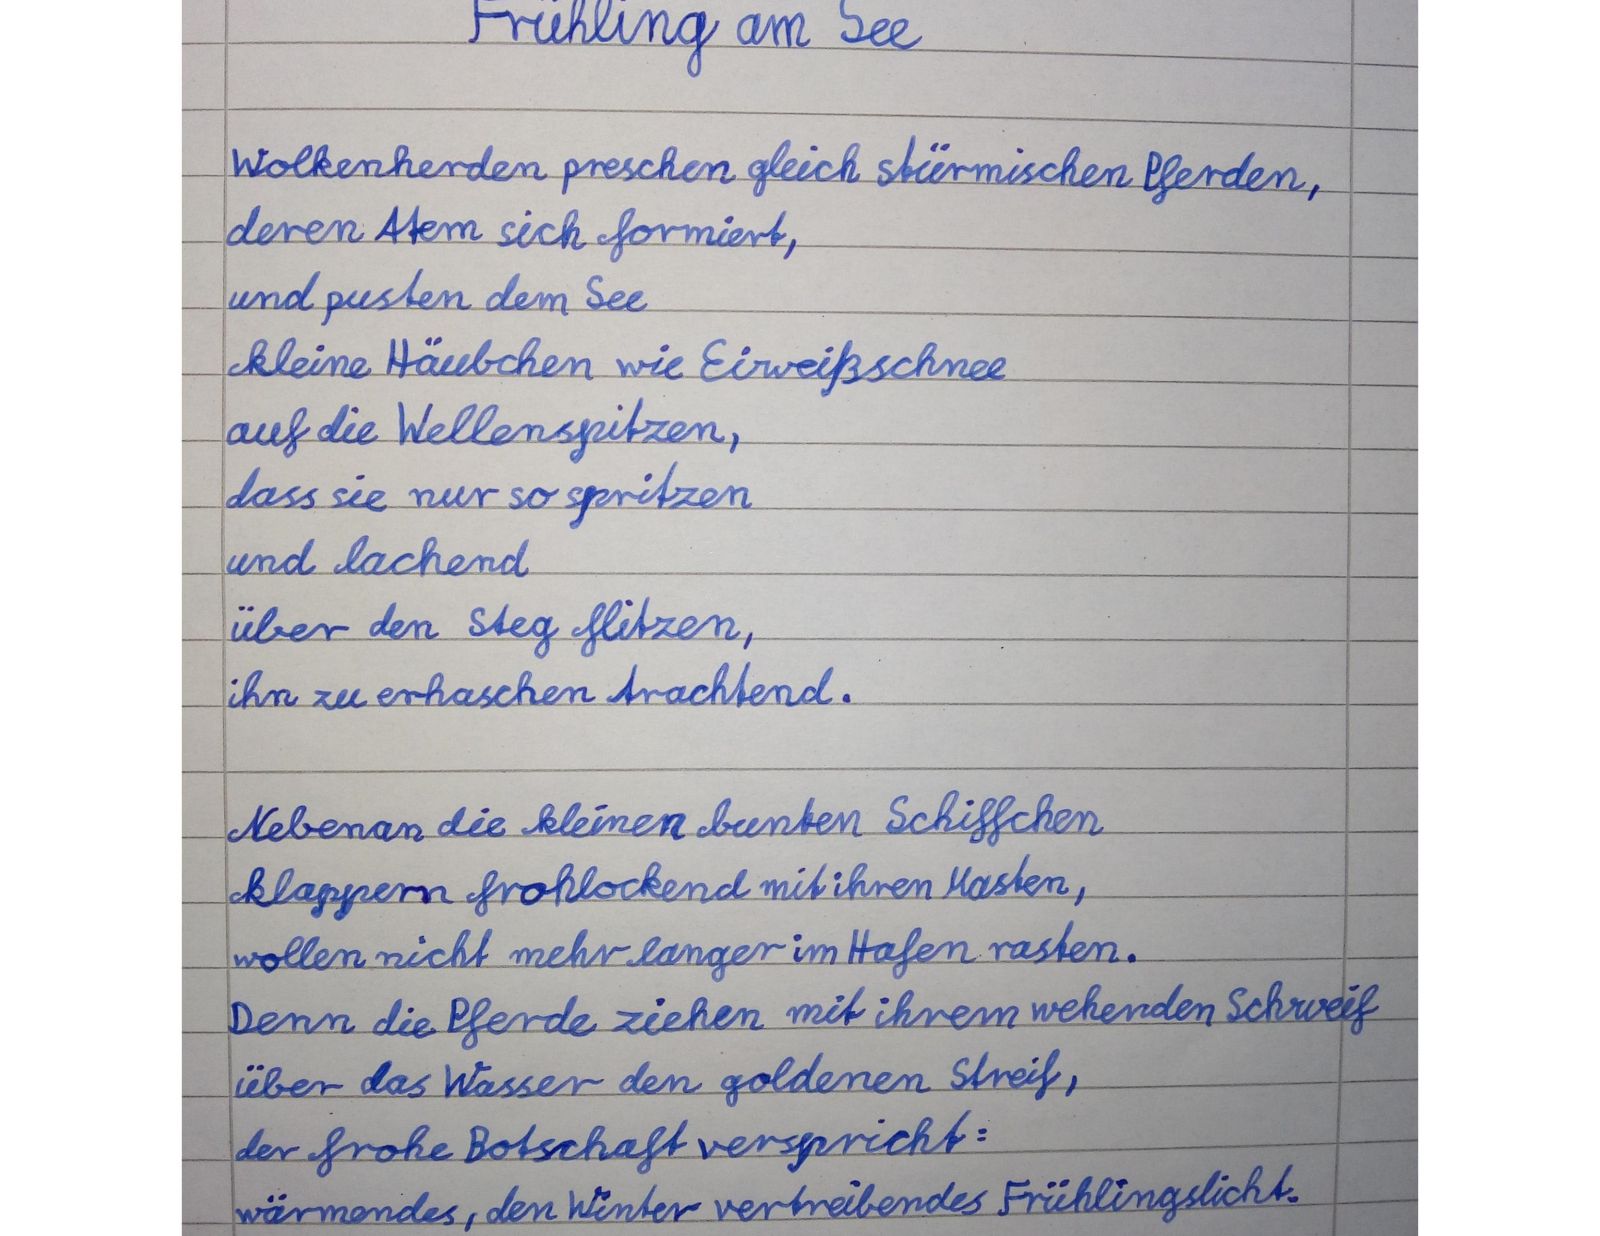 Frühling am See
Wolkenherden preschen gleich stürmischen Pferden,
deren Atem sich formiert,
und pusten dem See
kleine Häubchen wie Eiweißschnee
auf die Wellenspitzen,
dass sie nur so spritzen
und lachend
über den Steg flitzen,
ihn zu erhaschen trachtend.
Nebenan die kleinen bunten Schiffchen
klappern frohlockend mit ihren Masten,
wollen nicht mehr langer im Hafen rasten.
Denn die Pferde ziehen mit ihrem wehenden Schweif
über das Wasser den goldenen Streif,
der frohe Botschaft verspricht:
wärmendes, den Winter vertreibendes Frühlingslicht.